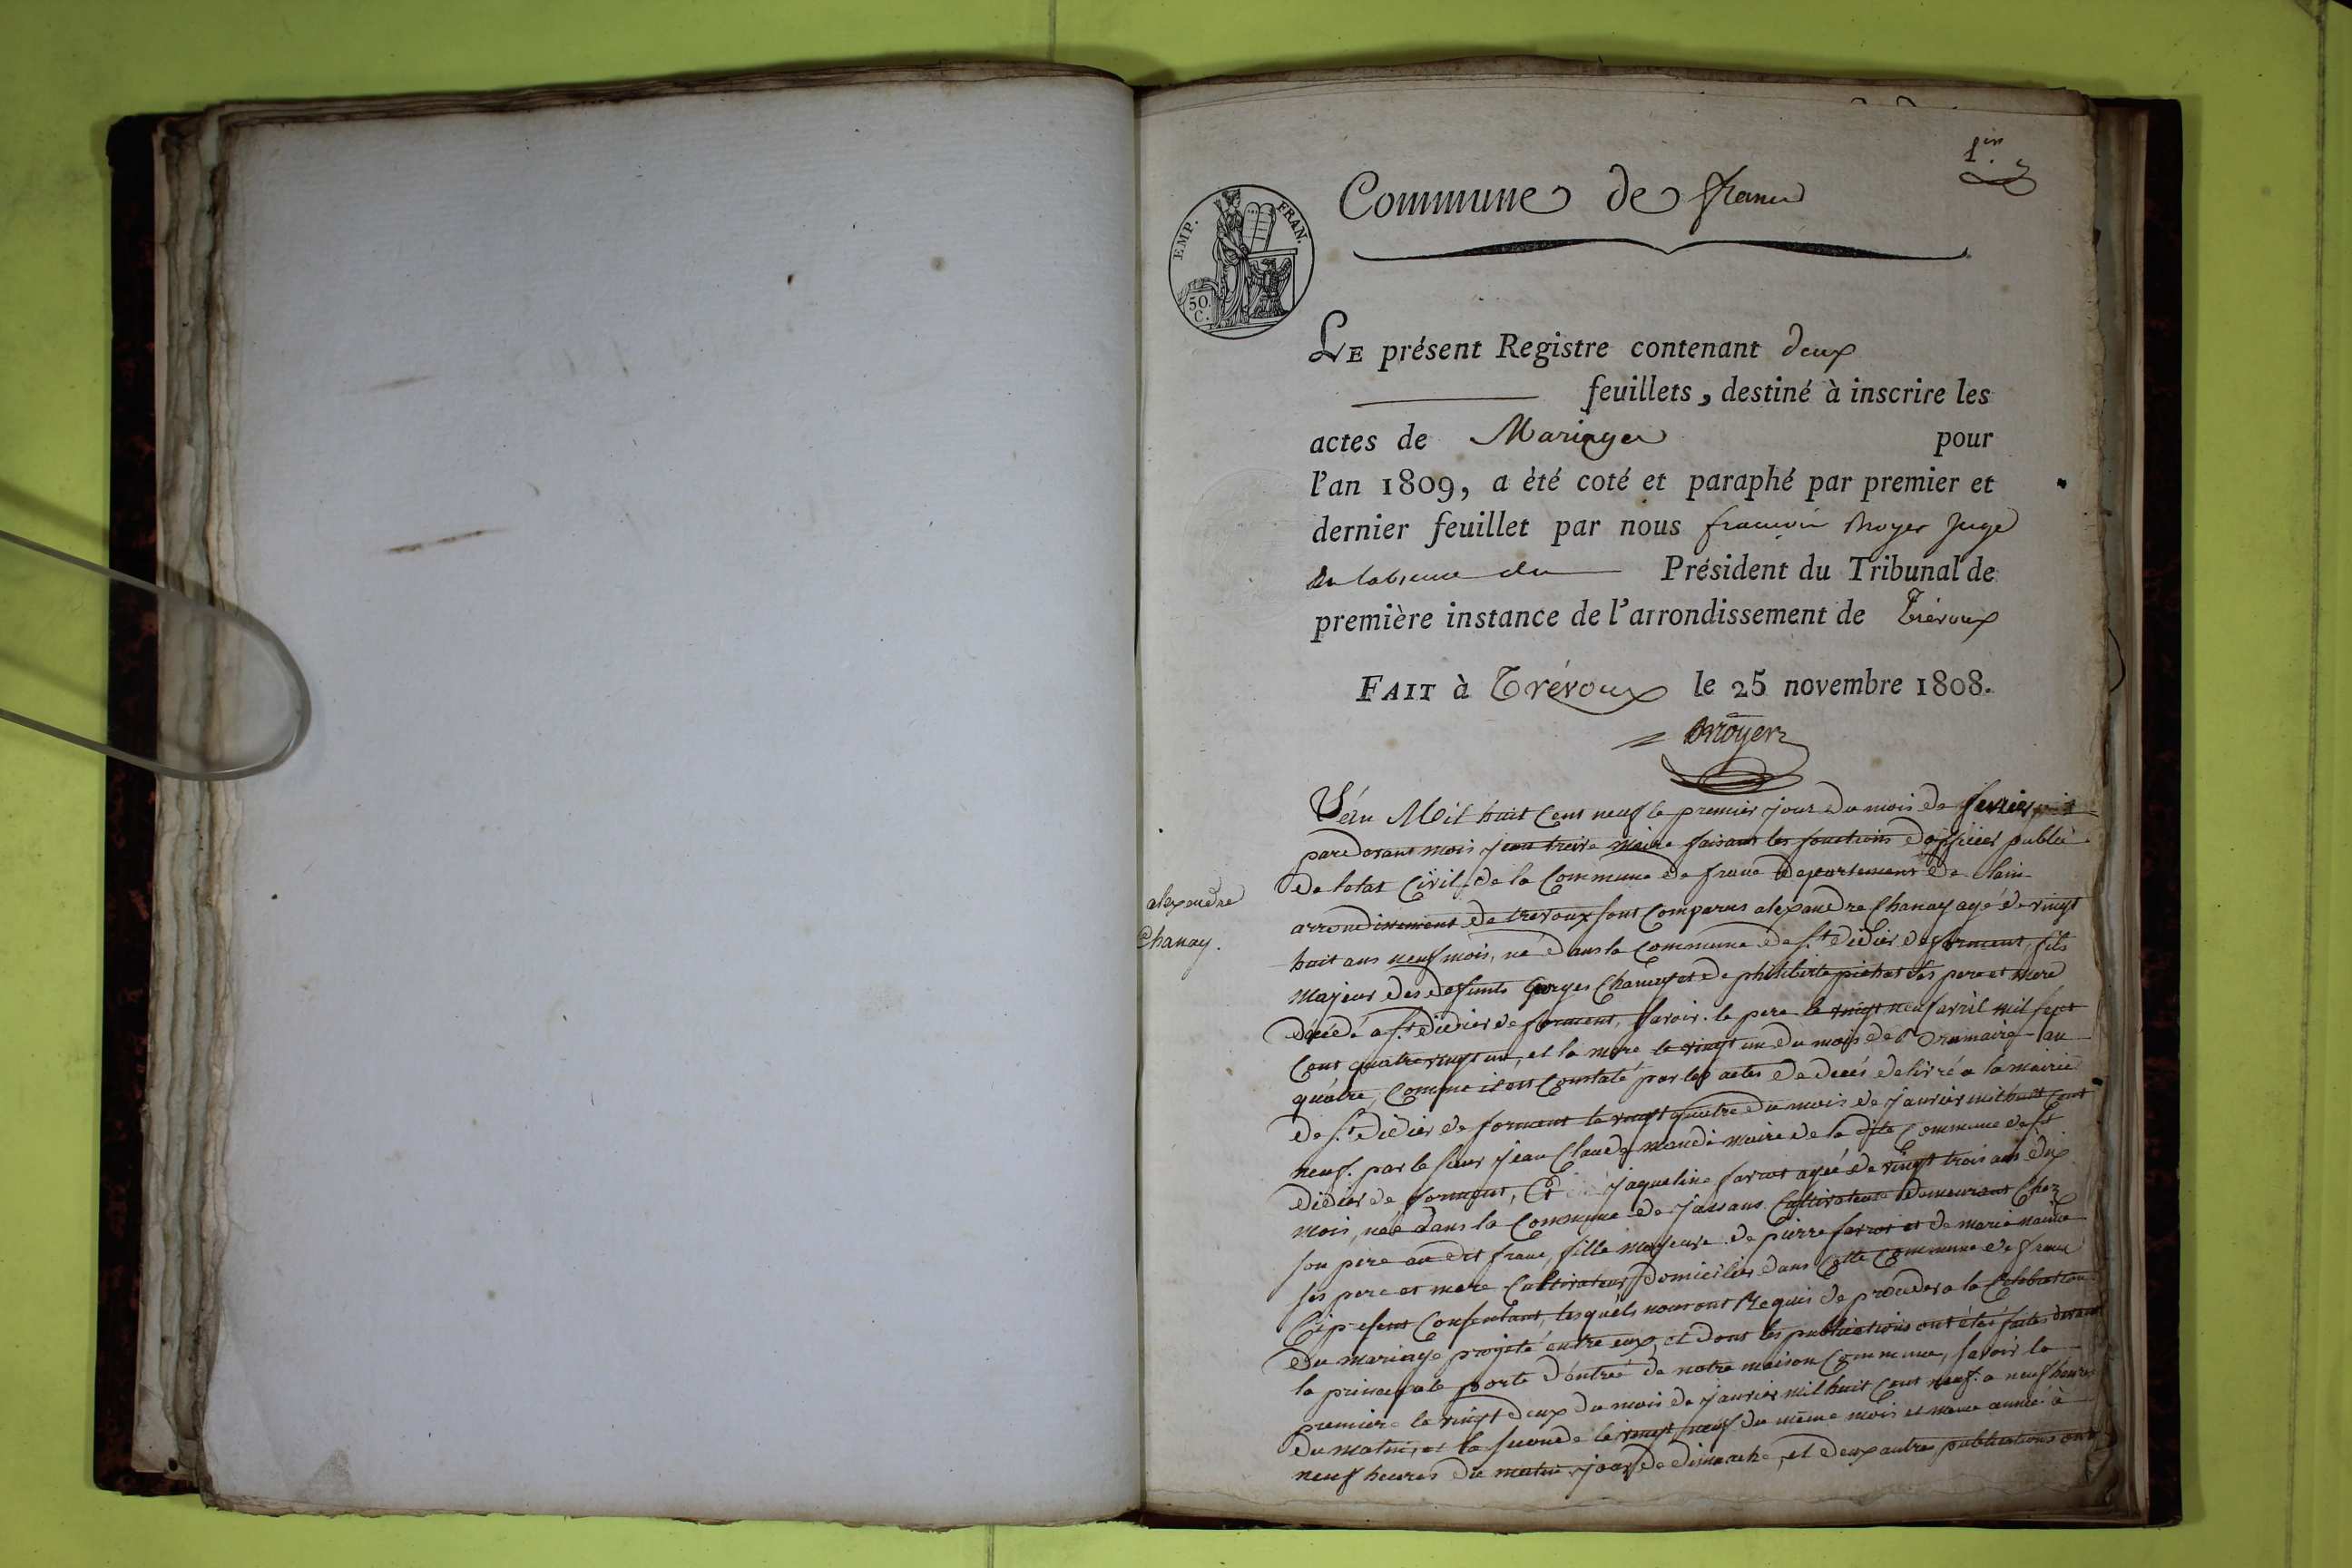 1er
EMP. FRAN.
50. C.
Commune de frans
LE présent Registre contenant deux
feuillets, destiné à inscrire les
actes de Mariages pour
l'an 1809, a èté coté et paraphé par premier et
dernier feuillet par nous françois Broyer Juge
en labsence du Président du Tribunal de
première instance de l'arrondissement de Trévoux
FAIT à Trévoux le 25 novembre 1808.
Broyer
alexandre
Chanay.
L'én Mil huit Cent neuf le premier jour du mois de fevrier
pardevant mois jean maire faisant les fonctions d'officier public
de letat Civil de la Commune de frans departement de lain
arrondissement de trevoux sont Comparus alexandre Chanay agé de vingt
huit ans neuf mois, né dans la Commune de St didier de formens, fils
Majeur des defunts Gorges Chanay et de philiberte pichat ses pere et mere
décédé a St didier de formens, savoir. le pere le vingt neuf avril mil sept
Cent quatre vingt un, et la mere le vingt un du mois de Brumaire lan
quatre, Comme il est Constaté par les actes de décés delivré a la mairie
de St didier de formens le vingt quatre du mois de janvier mil huit Cent
neuf. par le sieur jean Claude maire de la dite Commune de St
didier de formens, Et jaqueline favrot agée de vingt trois ans dix
mois, née dans la Commune de jassans Cultivateuse demeurant Chez
son pere au dit frans, fille majeure de pierre favrot et de marie
ses pere et mere Cultivateurs domiciliés dans Cette Commune de frans
Ci present Consentant, lesquels nous ont Requis de procéder a la Celebration
du mariage projeté entre eux, et dont les publications ont étés faites devant
la principale porte d'entrée de notre maison Commune, savoir la
premiere le vingt deux du mois de janvier mil huit Cent neuf. a neuf heures
du matin, et la seconde le vingt neuf du même mois et même année à
neuf heures du matin, jour de dimanche, et deux autres publications ont